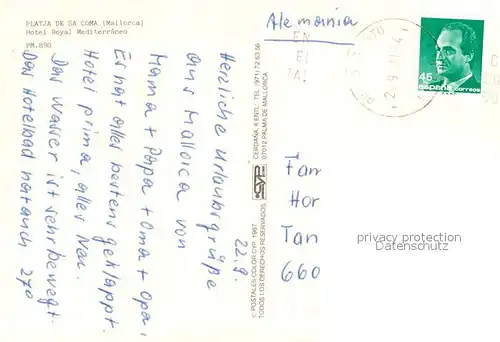 PLATJA DE SA COMA (Mallorca)
Hotel Royal Mediterráneo
PM.890
22.9.
Herzliche Urlaubsgrüße
aus Mallorca von
Mama + Papa + Oma + Opa,
Es hat alles bestens geklappt.
Hotel prima, alles Neu.
Das Wasser ist sehr bewegt.
Das Hotelbad hat auch 27°
© POSTALES COLOR CYP, 1987
TODOS LOS DERECHOS RESERVADOS
CYP
CERDAÑA, 6 ENTL. TEL. (971) 72 63 56
07012 PALMA DE MALLORCA
Alemania
EN
45
españa correos
Fam
Her
Tan
660
privacy protection
Datenschutz